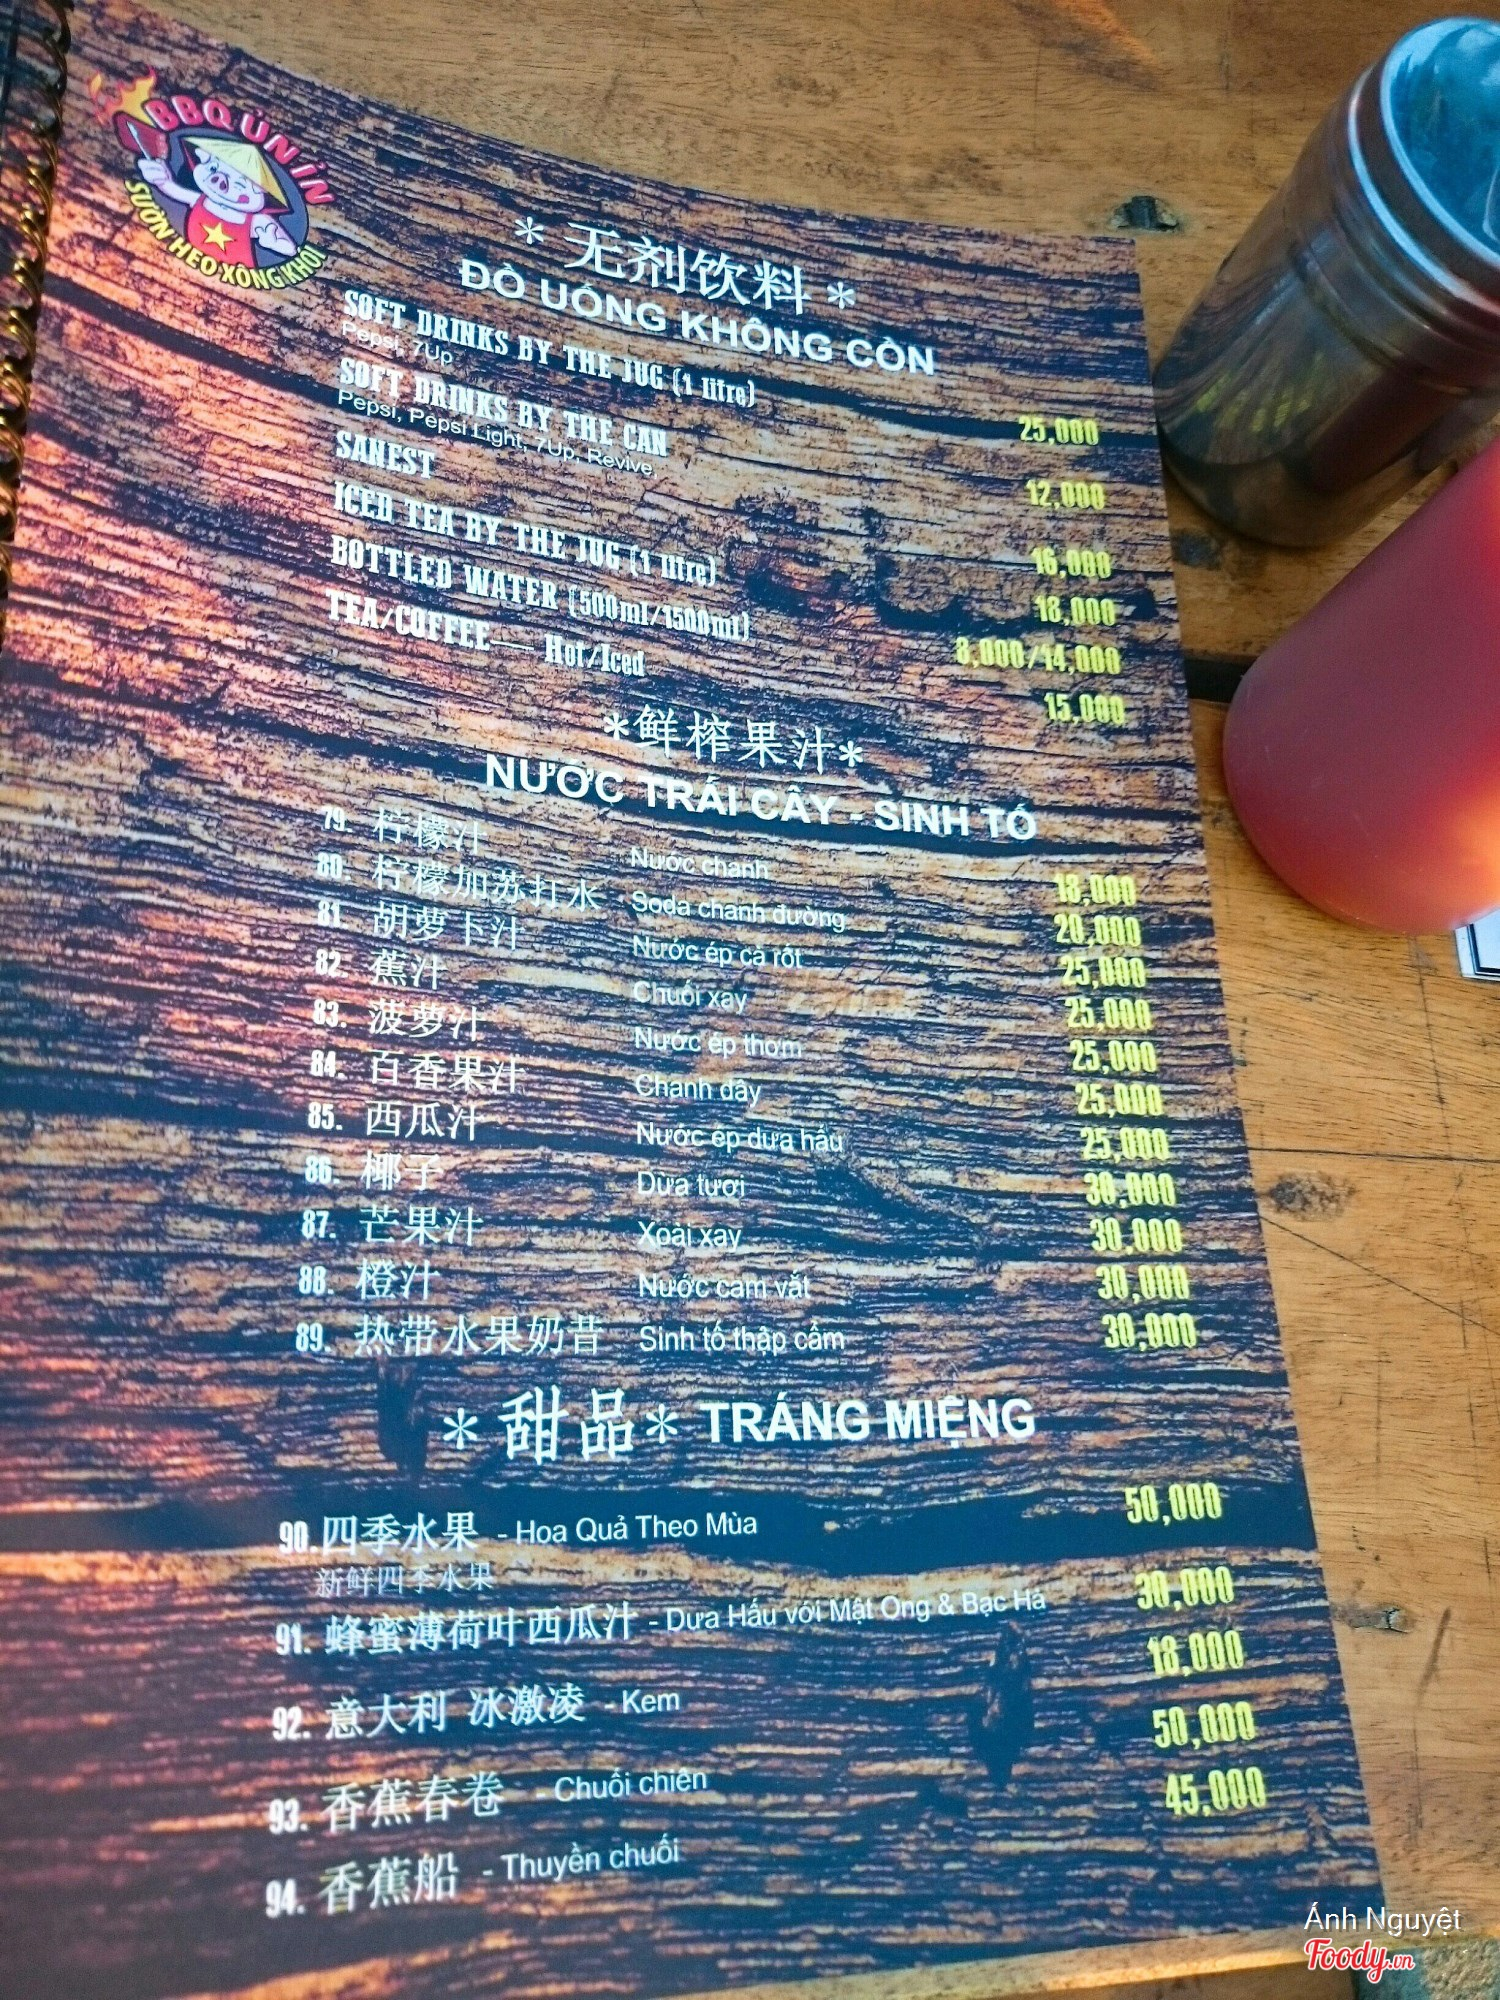 BBQ ỦN ỈN
SƯỜN HEO XÔNG KHÓI
* 无剂饮料 *
ĐỒ UỐNG KHÔNG CỒN
SOFT DRINKS BY THE JUG (1 litre) 25,000
Pepsi, 7Up
SOFT DRINKS BY THE CAN 12,000
Pepsi, Pepsi Light, 7Up, Revive,
SANEST 16,000
ICED TEA BY THE JUG (1 litre) 18,000
BOTTLED WATER (500ml/1500ml) 8,000/14,000
TEA/COFFEE— Hot/Iced 15,000
*鲜榨果汁*
NƯỚC TRÁI CÂY - SINH TỐ
79. 柠檬汁 Nước chanh 18,000
80. 柠檬加苏打水 Soda chanh đường 20,000
81. 胡萝卜汁 Nước ép cà rốt 25,000
82. 蕉汁 Chuối xay 25,000
83. 菠萝汁 Nước ép thơm 25,000
84. 百香果汁 Chanh dây 25,000
85. 西瓜汁 Nước ép dưa hấu 25,000
86. 椰子 Dừa tươi 30,000
87. 芒果汁 Xoài xay 30,000
88. 橙汁 Nước cam vắt 30,000
89. 热带水果奶昔 Sinh tố thập cẩm 30,000
* 甜品* TRÁNG MIỆNG
90. 四季水果 - Hoa Quả Theo Mùa 50,000
新鲜四季水果
91. 蜂蜜薄荷叶西瓜汁 - Dưa Hấu với Mật Ong & Bạc Hà 30,000
92. 意大利 冰激凌 - Kem 18,000
93. 香蕉春卷 - Chuối chiên 50,000
94. 香蕉船 - Thuyền chuối 45,000
Ánh Nguyệt
Foody.vn